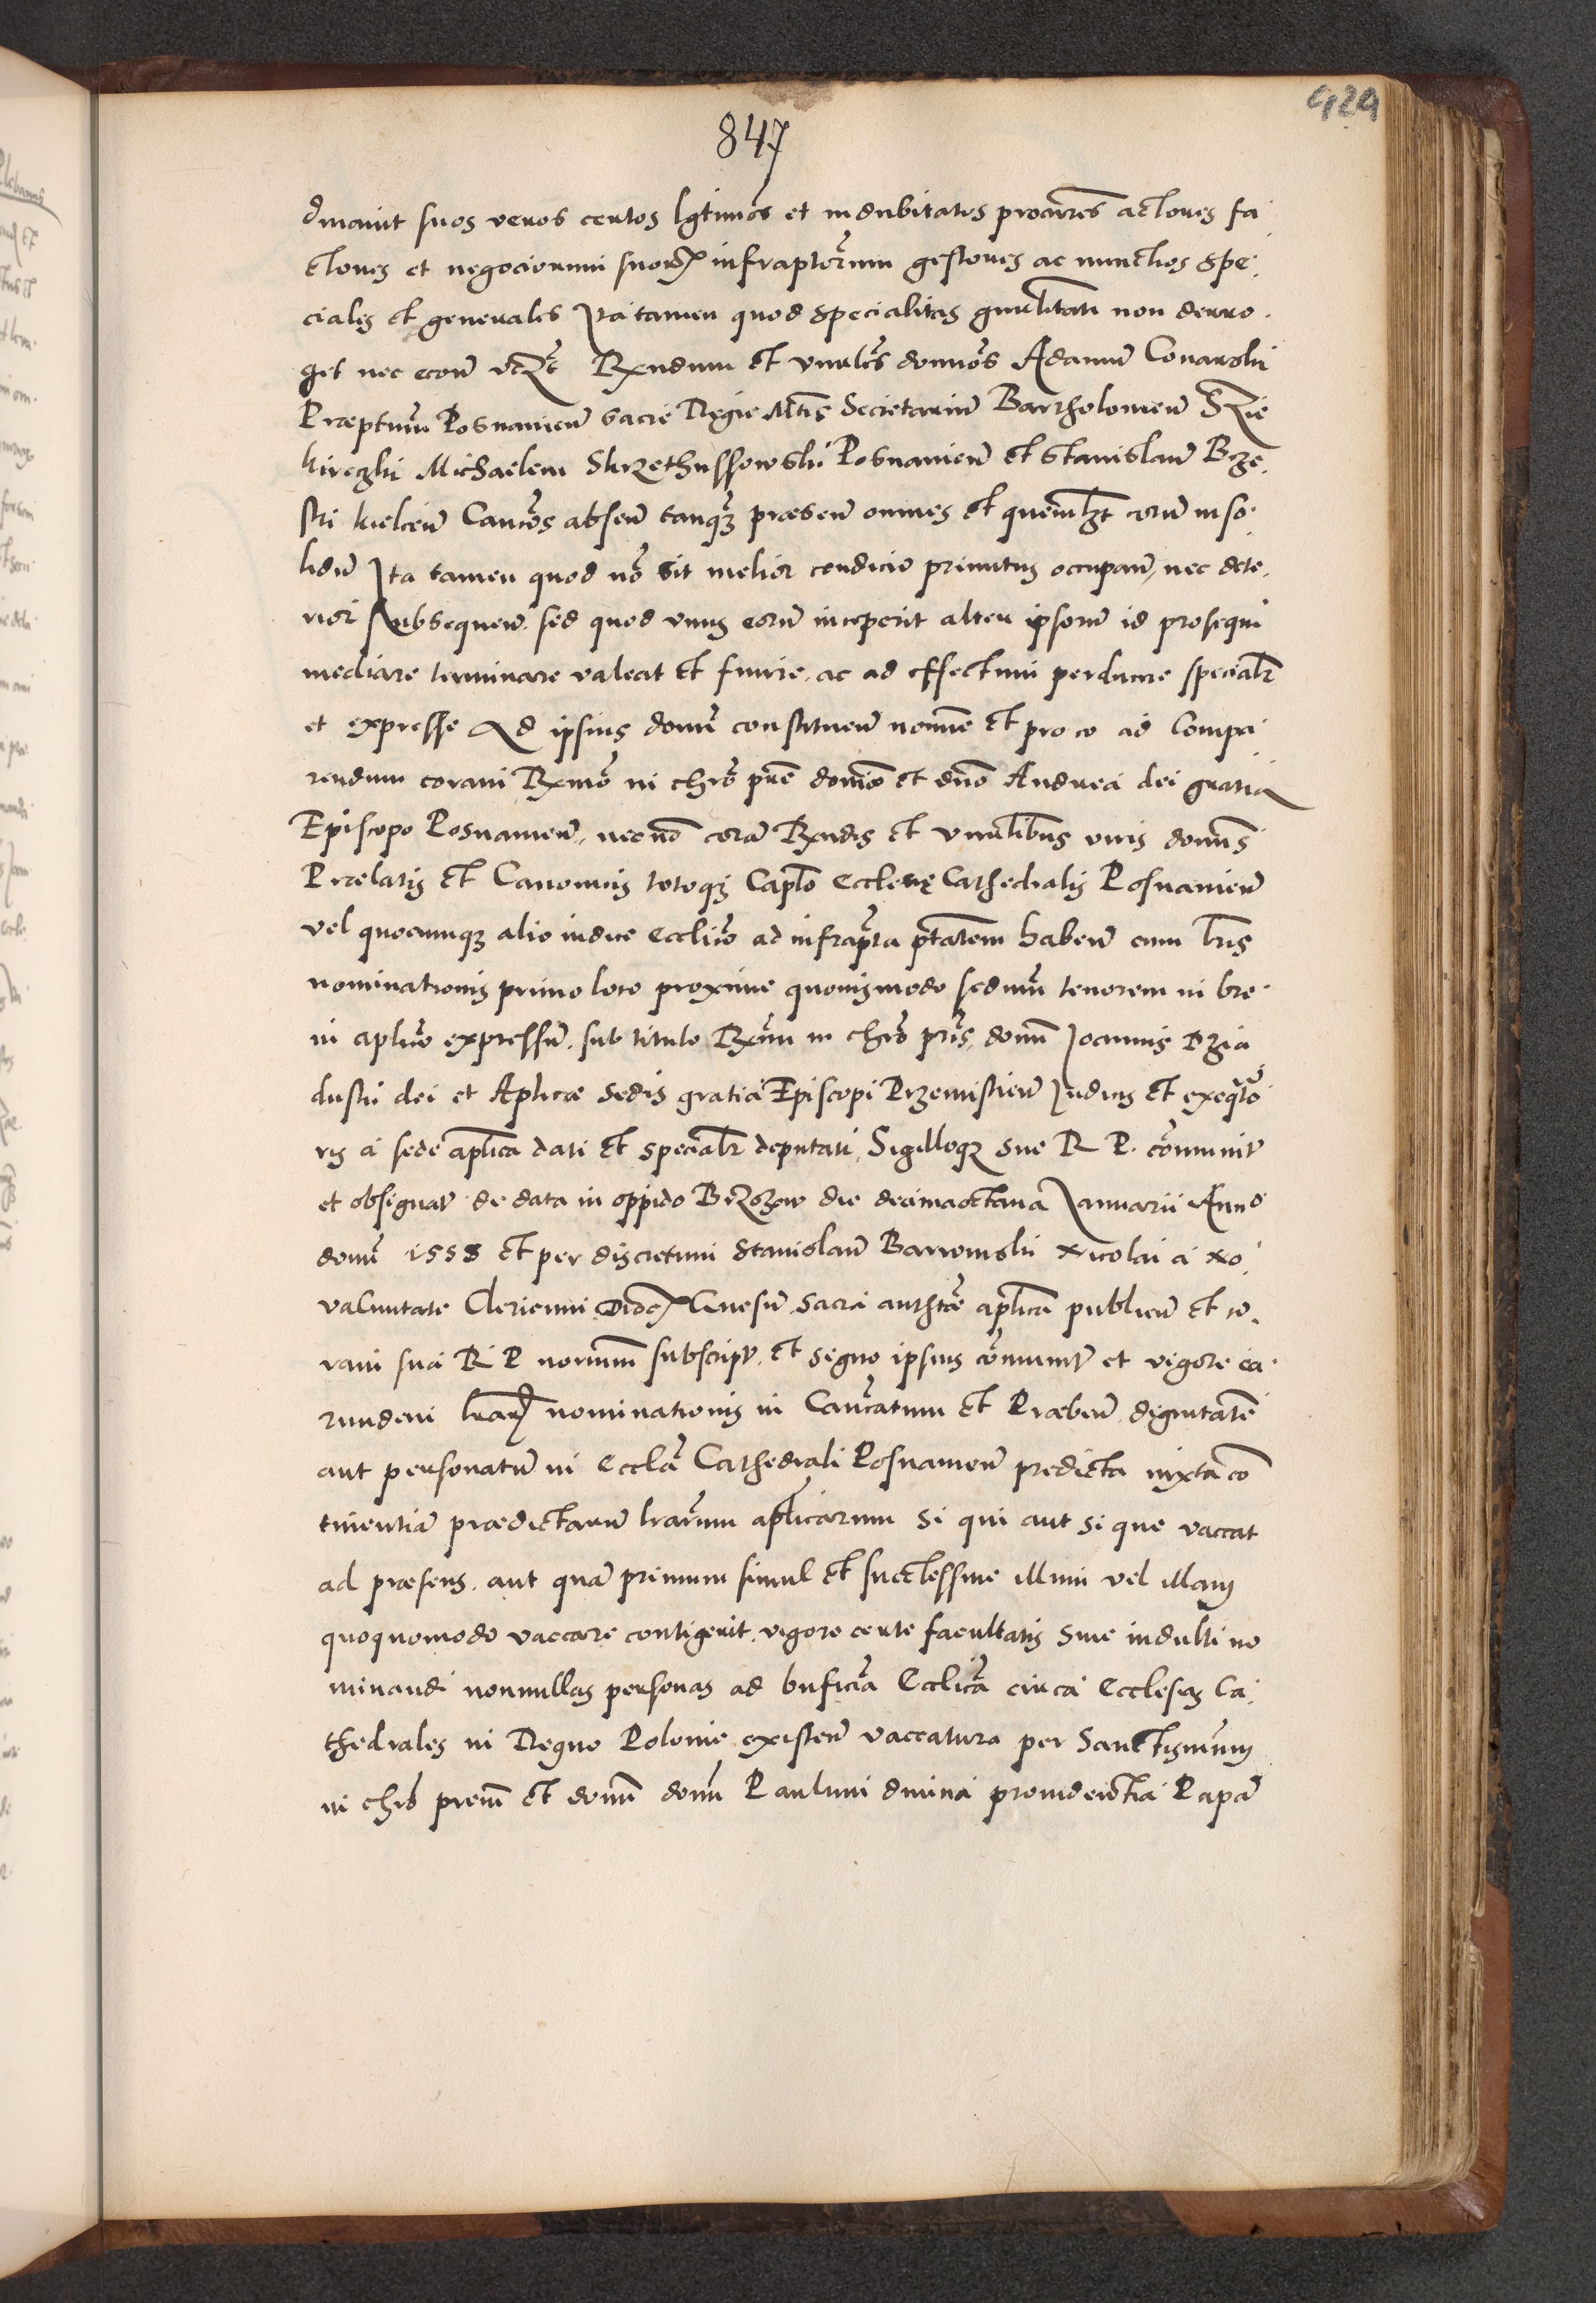 424
847
dinavit suos veros certos lgtimos et indubitatos procures actores fa
ctores et negociorum suorum infraptorum gestores ac nunctios spe
ciales et generales Ita tamen quod specialitas gnrlitati non derro
get nec econ Rndum et vnrles domnos Adamu Conarski
Praeptum Posnanien sacre Regie Mtis Secretariu Bartholomeu
Michaelem Skrzethussowski Posnanien et Stanislau Brze
ski kielcen Cancos absen tanq praesen omnes et quemlbt eoru inso
lidu Ita tamen quod no sit melior condicio primitus occupan, nec dete
rior subsequen. sed quod vnus eoru inceperit alter ipsoru id prosequi
mediare terminare valeat et finire, ac ad effectum perducere specialr
et expresse Ad ipsius domi constituen nomine et pro eo ad Compa
rendum coram Rxmo in chro pre domino et dno Andrea dei gratia
Episcopo Posnanien, nec no cora Rndis et vnrlibus viris domnis
Praelatis et Canonicis totoq Caplo Ecclesię Cathedralis Posnanien
vel quocunq alio iudice ecclico ad infrapta ptatem haben cum lris
nominationis primo loco proxime quovismodo sedmu tenorem in bre
vi aplico expressu. sub titulo Rxmi in chro pris, domi Joannis Dzia
duski dei et Aplicae sedis gratia Episcopi Przemislien Judicis et exequto
ris a sede aplica dati et specialr deputati, Sigilloq sue R P. comunit
et obsignat de data in oppido Brzozow die decima octava Januarii Anno
domi 1558 et per discretum Stanislau Barwinski Nicolai a No
va Civitate Clericum Gnesn, sacra authte aplica publicu et co
ram sua R P notarium subscript. et signo ipsius comunit et vigore ea
rundem lrar nominationis in Cancatum et Praeben, dignitate
aut personatu in Eccla Cathedrali Posnanien predicta iuxta co
tinentia praedictaru lrarum aplicarum si qui aut si que vaccat
ad praesens, aut qua primum simul et successive illum vel illam
quoquomodo vaccare contigerit. vigore certe facultatis sive indulti no
minandi nonnullas personas ad bnficia Ecclica circa Ecclesias Ca
thedrales in Regno Polonie existen vaccatura per Sanctismum
in chro prem et domi domi Paulum divina providentia Papa